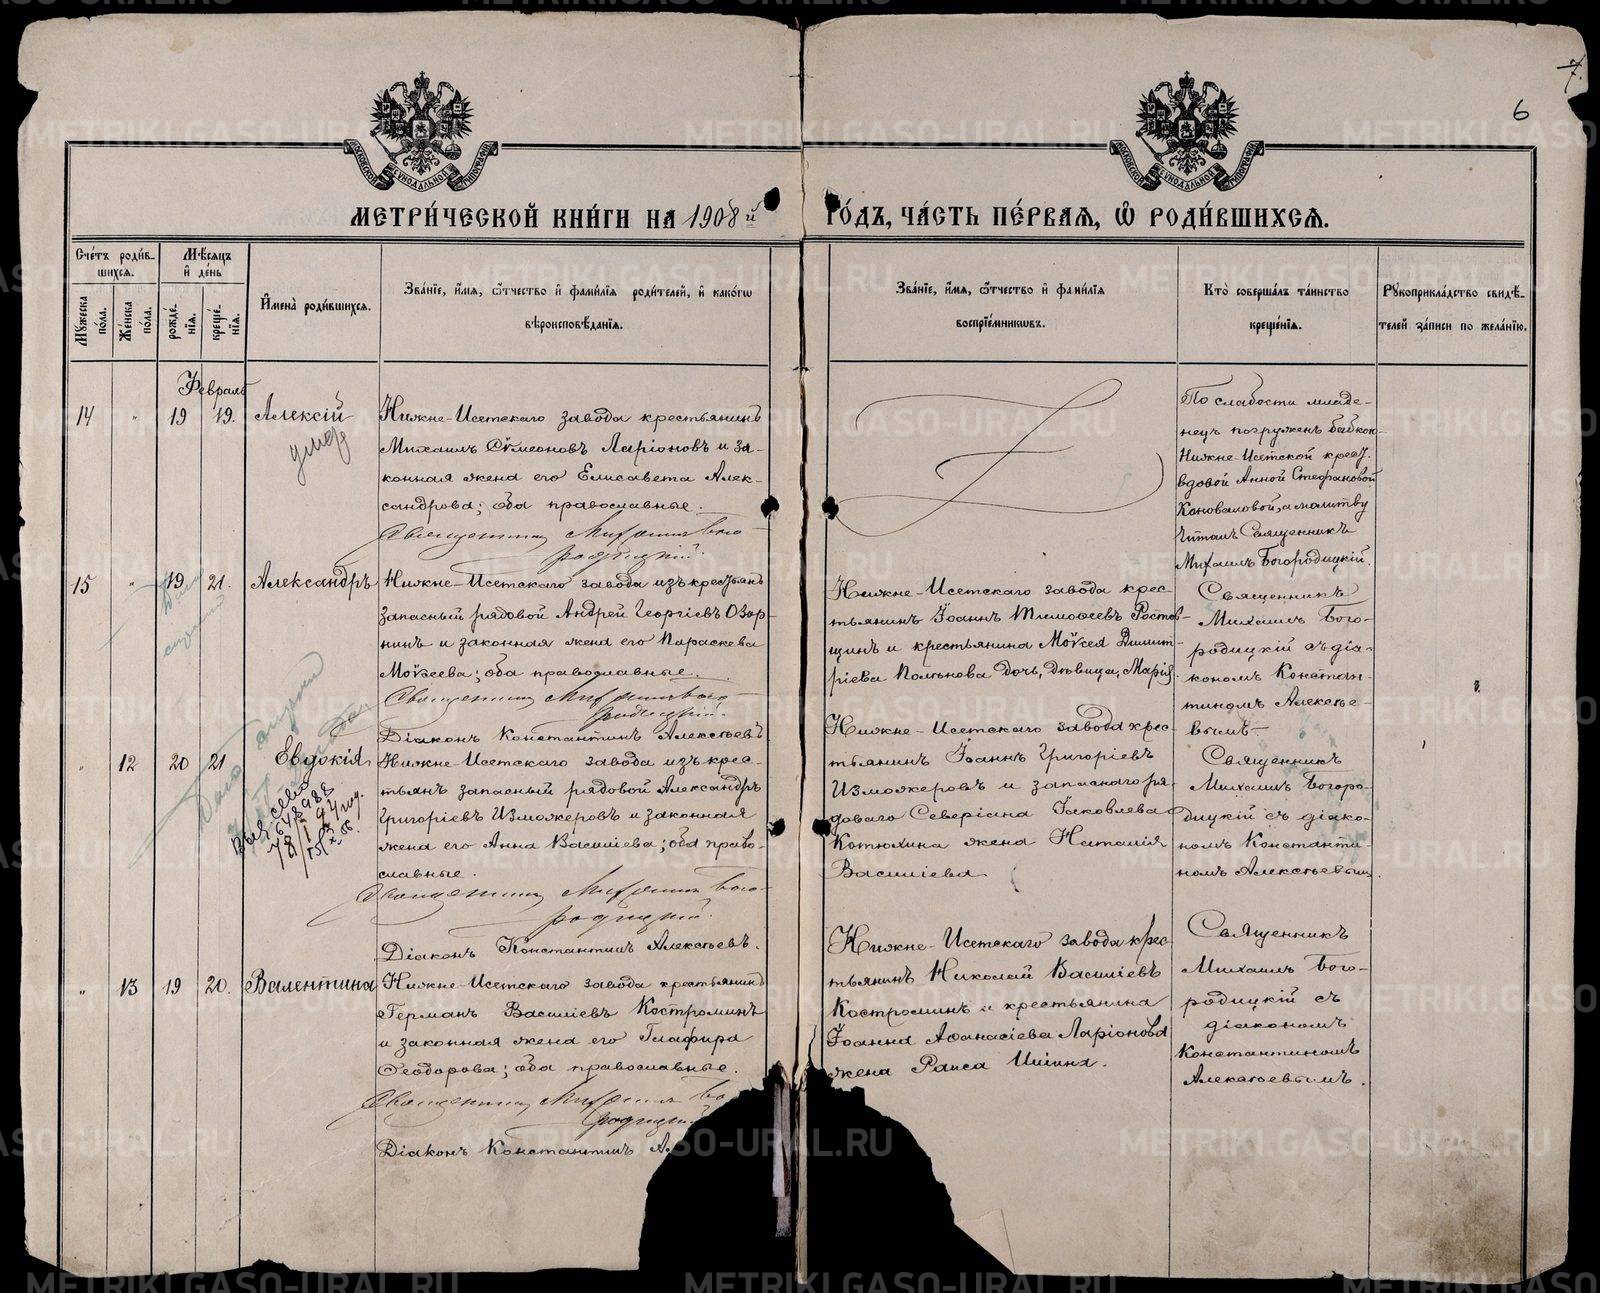 7.
6
МОСКОВСКОЙ СѴНОДАЛЬНОЙ ТИПОГРАФІИ
МОСКОВСКОЙ СѴНОДАЛЬНОЙ ТИПОГРАФІИ
МЕТРИ́ЧЕСКОЙ КНИ́ГИ НА 1908й ГО́ДЪ, ЧА́СТЬ ПЕ́РВАЯ, Ѡ РОДИ́ВШИХСЯ.
Сче́тъ роди́вшихся.
Му́жеска по́ла.
Же́нска по́ла.
Мѣ́сяцъ и҆ де́нь
рожде́нїя.
креще́нїя.
И҆мена̀ роди́вшихся.
Зва́нїе, и҆́мя, ѻ҆́тчество и҆ фами́лїя роди́телей, и҆ како́гѡ
вѣроисповѣ́данїя.
Зва́нїе, и҆́мя, ѻ҆́тчество и҆ фами́лїя
воспрїе́мникѡвъ.
Кто̀ соверша́лъ та́инство
креще́нїя.
Рукоприкла́дство свидѣ́-
телей за́писи по жела́нїю.
Февраль
14 " 19 19. Алексій
умер
Нижне-Исетскаго завода крестьянинъ
Михаилъ Сѵмеоновъ Ларіоновъ и за-
конная жена его Елисавета Алек-
сандрова; оба православные.
Священникъ Михаилъ Бого-
родицкій.
По слабости младе-
нецъ погруженъ бабкой
Нижне-Исетской крест.
вдовой Анной Стефановой
Коноваловой, а молитву
читалъ Священникъ
Михаилъ Богородицкій.
15 " 19 21. Александръ
Нижне-Исетскаго завода изъ крестьянъ
запасный рядовой Андрей Георгіевъ Озор-
нинъ и законная жена его Параскева
Моѵсеева; оба православные.
Священникъ Михаилъ Бого-
родицкій.
Діаконъ Константинъ Алексѣевъ
Нижне-Исетскаго завода крес-
тьянинъ Іоаннъ Тимофеевъ Ростов-
щинъ и крестьянина Моѵсея Димит-
ріева дочь, дѣвица, Марія.
Священникъ
Михаилъ Бого-
родицкій съ діа-
кономъ Констан-
тиномъ Алексѣе-
вымъ
" 12 20 21 Евдокія
Нижне-Исетскаго завода изъ крес-
тьянъ запасный рядовой Александръ
Григоріевъ Изможеровъ и законная
жена его Анна Васильева; оба право-
славные.
Священникъ Михаилъ Бого-
родицкій.
Діаконъ Константинъ Алексѣевъ.
Нижне-Исетскаго завода крес-
тьянинъ Іоаннъ Григоріевъ
Изможеровъ и запаснаго ря-
доваго Северіана Іаковлева
Котюхина жена Наталія
Васильева
Священникъ
Михаилъ Богоро-
дицкій съ діако-
номъ Константи-
номъ Алексѣевымъ.
" 13 19 20. Валентина
Нижне-Исетскаго завода крестьянинъ
Германъ Васильевъ Костроминъ
и законная жена его Глафира
Ѳеодорова; оба православные.
Священникъ Михаилъ Бо
родицк
Діаконъ Константинъ А
Нижне-Исетскаго завода крес
тьянинъ Николай Васильевъ
Костроминъ и крестьянина
Іоанна Аѳанасіева Ларіонова
жена Раиса Ильина.
Священникъ
Михаилъ Бого-
родицкій съ
діакономъ
Константиномъ
Алексѣевымъ.
METRIKI.GASO-URAL.RU